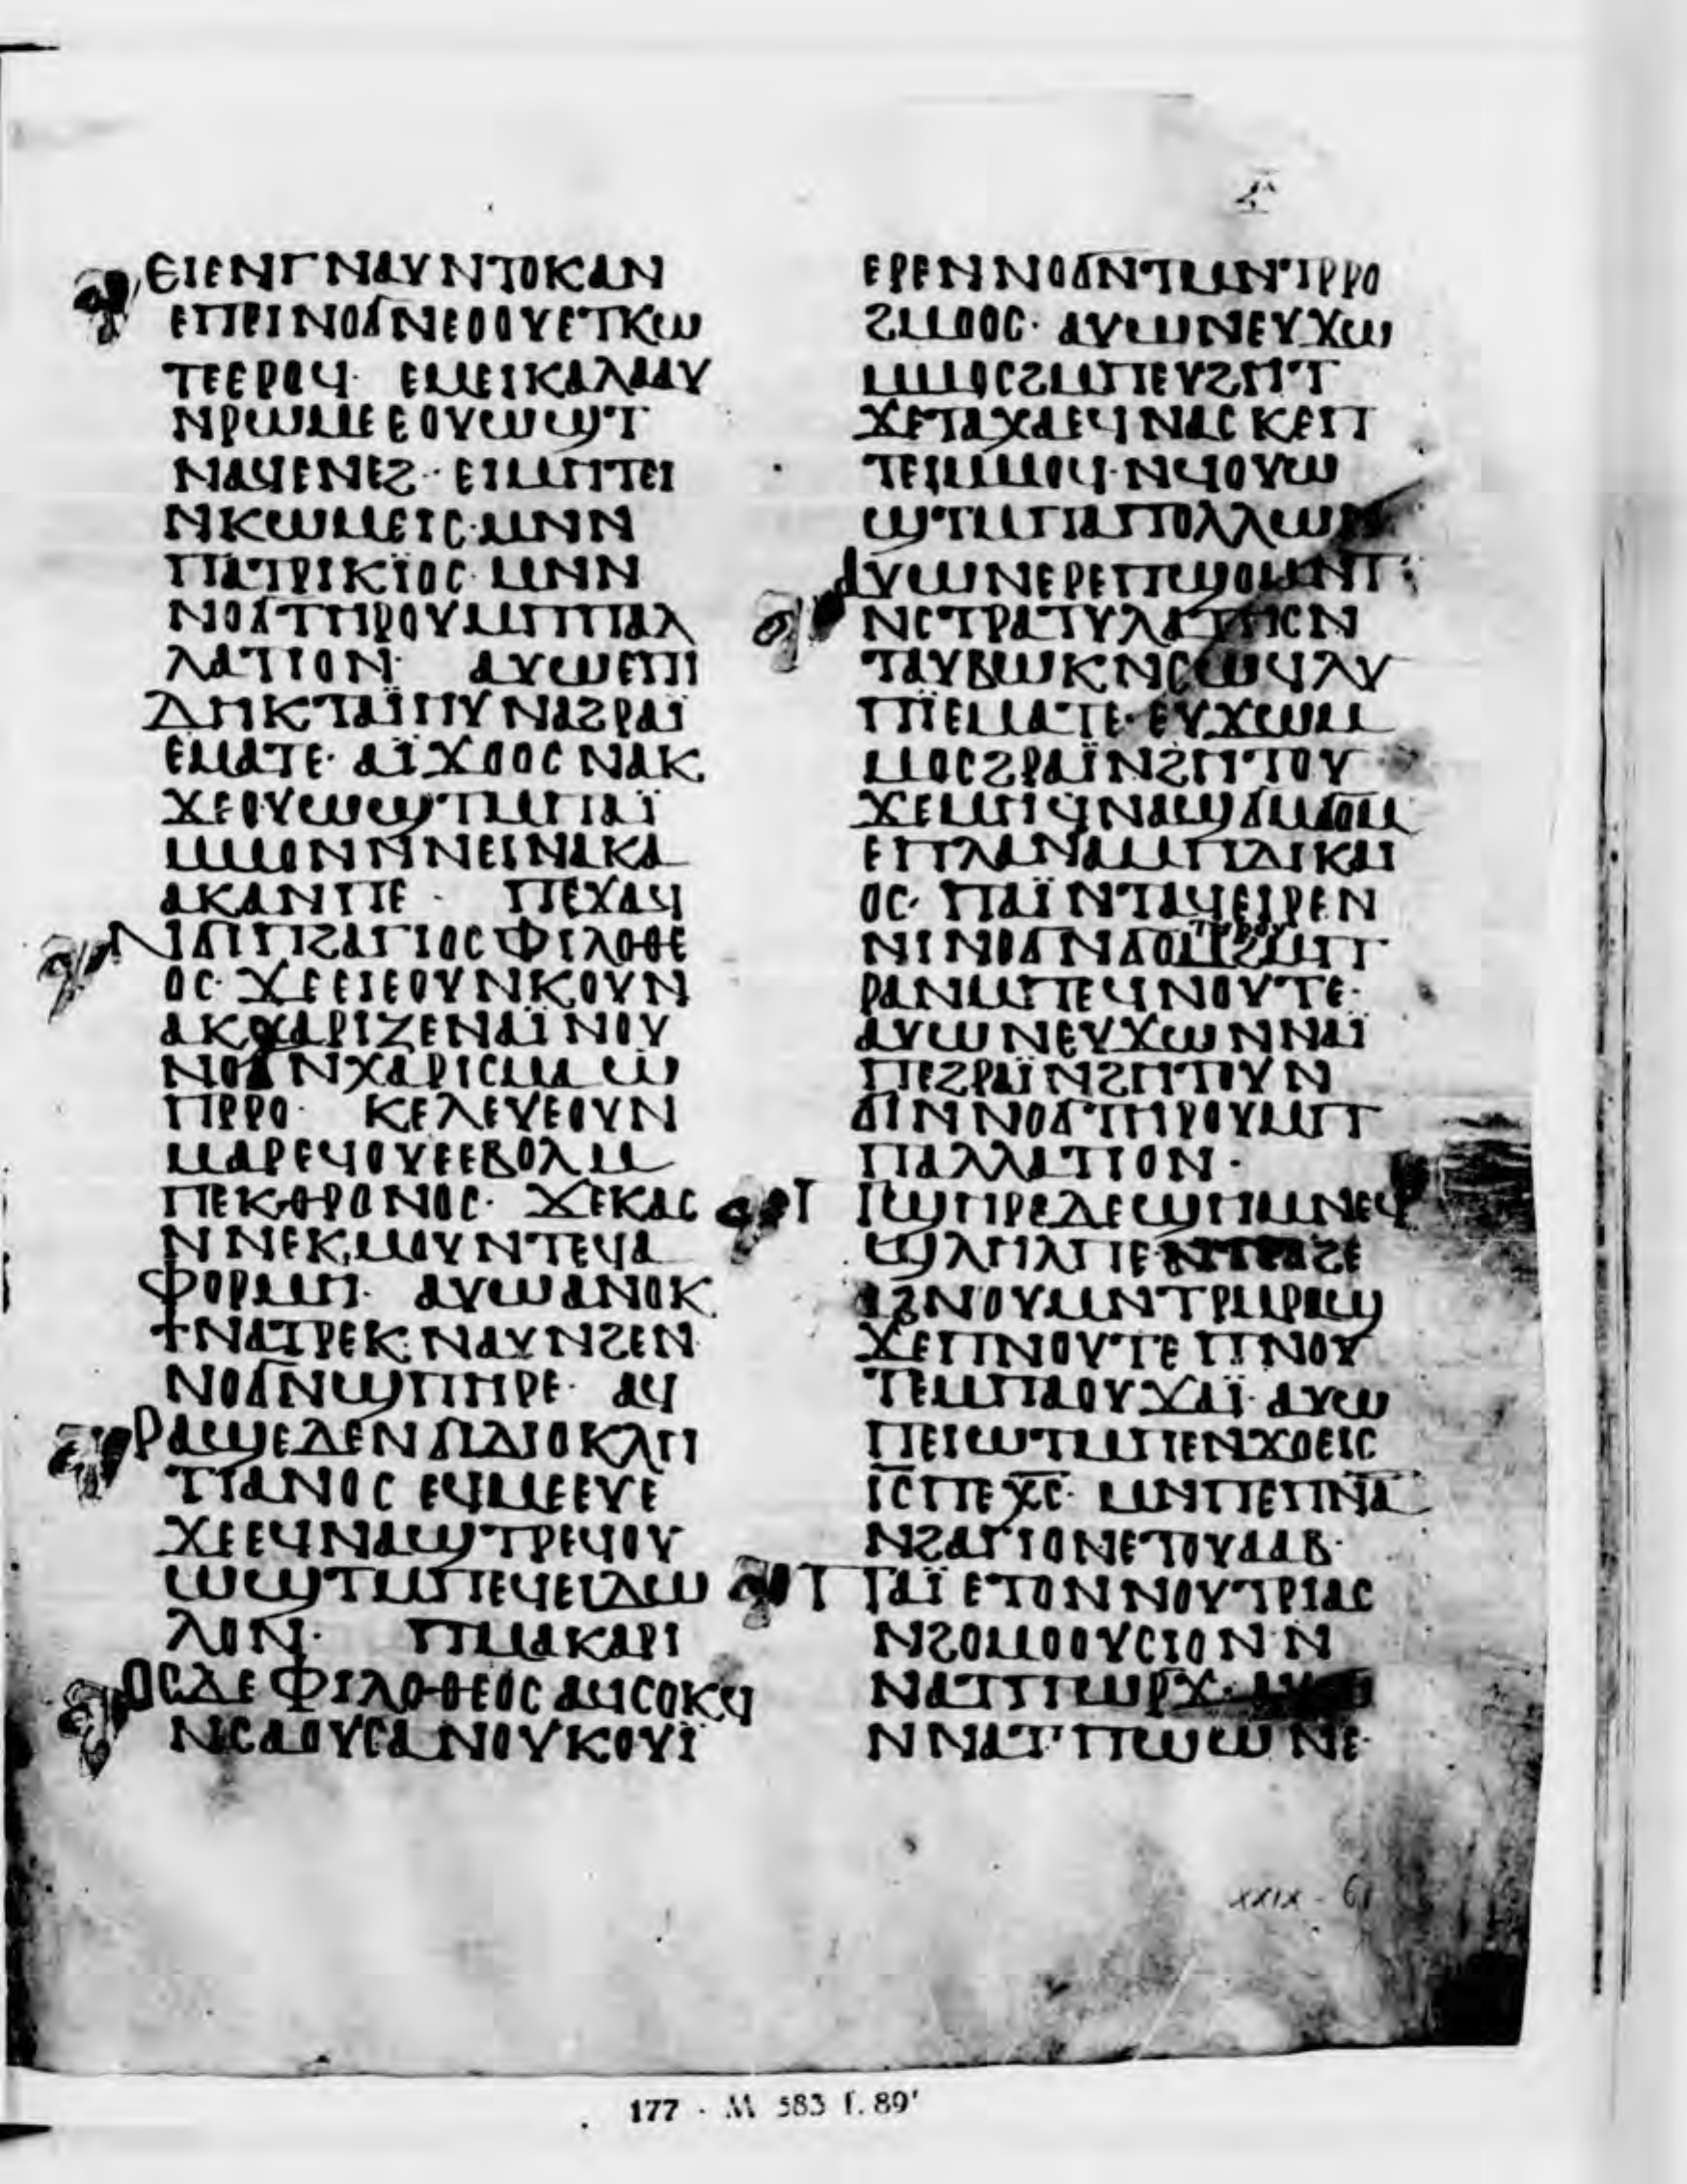 ⲉⲓⲉⲛⲅⲛⲁⲩⲛⲧⲟⲕⲁⲛ
ⲉⲡⲉⲓⲛⲟϭⲛⲉⲟⲟⲩⲉⲧⲕⲱ
ⲧⲉⲉⲣⲟϥ· ⲉⲙⲉⲓⲕⲁⲗⲁⲁⲩ
ⲛⲣⲱⲙⲉⲉⲟⲩⲱϣⲧ
ⲛⲁϥⲉⲛⲉϩ· ⲉⲓⲙⲏⲧⲉⲓ
ⲛⲕⲱⲙⲉⲓⲥ·ⲙⲛⲛ
ⲡⲁⲧⲣⲓⲕⲓ̈ⲟⲥ·ⲙⲛⲛ
ⲛⲟϭⲧⲏⲣⲟⲩⲙⲡⲡⲁⲗ
ⲗⲁⲧⲓⲟⲛ· ⲁⲩⲱⲉⲡⲓ
ⲇⲏⲕⲧⲁⲓ̈ⲏⲩⲛⲁϩⲣⲁⲓ̈
ⲉⲙⲁⲧⲉ· ⲁⲓ̈ϫⲟⲟⲥⲛⲁⲕ
ϫⲉⲟⲩⲱϣⲧⲙⲡⲁⲓ̈
ⲙⲙⲟⲛⲛⲛⲉⲓⲛⲁⲕⲁ
ⲁⲕⲁⲛⲡⲉ· ⲡⲉϫⲁϥ
ⲛϭⲓⲡϩⲁⲅⲓⲟⲥⲫⲓⲗⲟⲑⲉ
ⲟⲥ· ϫⲉⲉⲓⲉⲟⲩⲛⲕⲟⲩⲛ
ⲁⲕⲭⲁⲣⲓⲍⲉⲛⲁⲓ̈ⲛⲟⲩ
ⲛⲟϭⲛⲭⲁⲣⲓⲥⲙⲁ ⲱ
ⲡⲣⲣⲟ· ⲕⲉⲗⲉⲩⲉⲟⲩⲛ
ⲙⲁⲣⲉϥⲟⲩⲉⲉⲃⲟⲗⲙ
ⲡⲉⲕⲑⲣⲟⲛⲟⲥ· ϫⲉⲕⲁⲥ
ⲛⲛⲉⲕⲙⲟⲩⲛⲧⲉϥⲁ
ⲫⲟⲣⲙⲏ· ⲁⲩⲱⲁⲛⲟⲕ
ϯⲛⲁⲧⲣⲉⲕⲛⲁⲩⲛϩⲉⲛ
ⲛⲟϭⲛϣⲡⲏⲣⲉ· ⲁϥ
ⲣⲁϣⲉⲇⲉⲛϭⲓⲇⲓⲟⲕⲗⲏ
ⲧⲓⲁⲛⲟⲥ ⲉϥⲙⲉⲉⲩⲉ
ϫⲉⲉϥⲛⲁϣⲧⲣⲉϥⲟⲩ
ⲱϣⲧⲙⲡⲉϥⲉⲓⲇⲱ
ⲗⲟⲛ· ⲡⲙⲁⲕⲁⲣⲓ
ⲟⲥⲇⲉⲫⲓⲗⲟⲑⲉⲟⲥⲁϥⲥⲟⲕϥ
ⲛⲥⲁⲟⲩⲥⲁⲛⲟⲩⲕⲟⲩⲓ̈
ⲉⲣⲉⲛⲛⲟϭⲛⲧⲙⲛⲧⲣⲣⲟ
ϩⲙⲟⲟⲥ· ⲁⲩⲱⲛⲉⲩϫⲱ
ⲙⲙⲟⲥϩⲙⲡⲉⲩϩⲏⲧ
ϫⲉⲧⲁⲭⲁⲉϥⲛⲁⲥⲕⲉⲡ
ⲧⲉⲓⲙⲙⲟϥ·ⲛϥⲟⲩⲱ
ϣⲧⲙⲡⲁⲡⲟⲗⲗⲱⲛ
ⲁⲩⲱⲛⲉⲣⲉⲡϣⲟⲙⲛⲧ
ⲛⲥⲧⲣⲁⲧⲩⲗⲁⲧⲏⲥⲛ
ⲧⲁⲩⲃⲱⲕⲛⲥⲱϥⲗⲩ
ⲡⲓ̈ⲉⲙⲁⲧⲉ· ⲉⲩϫⲱⲙ
ⲙⲟⲥϩⲣⲁⲓ̈ⲛϩⲏⲧⲟⲩ
ϫⲉⲙⲏϥⲛⲁϣϭⲙϭⲟⲙ
ⲉⲡⲗⲁⲛⲁⲙⲡⲇⲓⲕⲁⲓ
ⲟⲥ· ⲡⲁⲓ̈ⲛⲧⲁϥⲉⲓⲣⲉⲛ
ⲛⲓⲛⲟϭⲛϭⲟⲙⲧⲏⲣⲟⲩϩⲙⲡ
ⲣⲁⲛⲙⲡⲉϥⲛⲟⲩⲧⲉ·
ⲁⲩⲱⲛⲉⲩϫⲱⲛⲛⲁⲓ
ⲡⲉϩⲣⲁⲓ̈ⲛϩⲏⲧⲟⲩⲛ
ϭⲓⲛⲛⲟϭⲧⲏⲣⲟⲩⲙⲡ
ⲡⲁⲗⲗⲁⲧⲓⲟⲛ·
ⲡϣⲏⲣⲉⲇⲉϣⲏⲙⲛⲉϥ
ϣⲗⲏⲗⲡⲉ
ⲁϩⲛⲟⲩⲙⲛⲧⲣⲙⲣⲁϣ
ϫⲉⲡⲛⲟⲩⲧⲉ ⲡⲛⲟⲩ
ⲧⲉⲙⲡⲁⲟⲩϫⲁⲓ̈· ⲁⲩⲱ
ⲡⲉⲓⲱⲧⲙⲡⲉⲛϫⲟⲉⲓⲥ
ⲓ̅ⲥ̅ⲡⲉⲭ̅ⲥ̅· ⲙⲛⲡⲉⲡⲛ̅ⲁ̅
ⲛϩⲁⲅⲓⲟⲛⲉⲧⲟⲩⲁⲁⲃ·
ⲧⲁⲓ̈ ⲉⲧⲟⲛⲛⲟⲩⲧⲣⲓⲁⲥ
ⲛϩⲟⲙⲟⲟⲩⲥⲓⲟⲛⲛ
ⲛⲁⲧⲡⲱⲣϫ· ⲁⲩⲱ
ⲛⲛⲁⲧⲡⲱⲱⲛⲉ·
xxix - 61
177 · M 583 f. 89ʳ